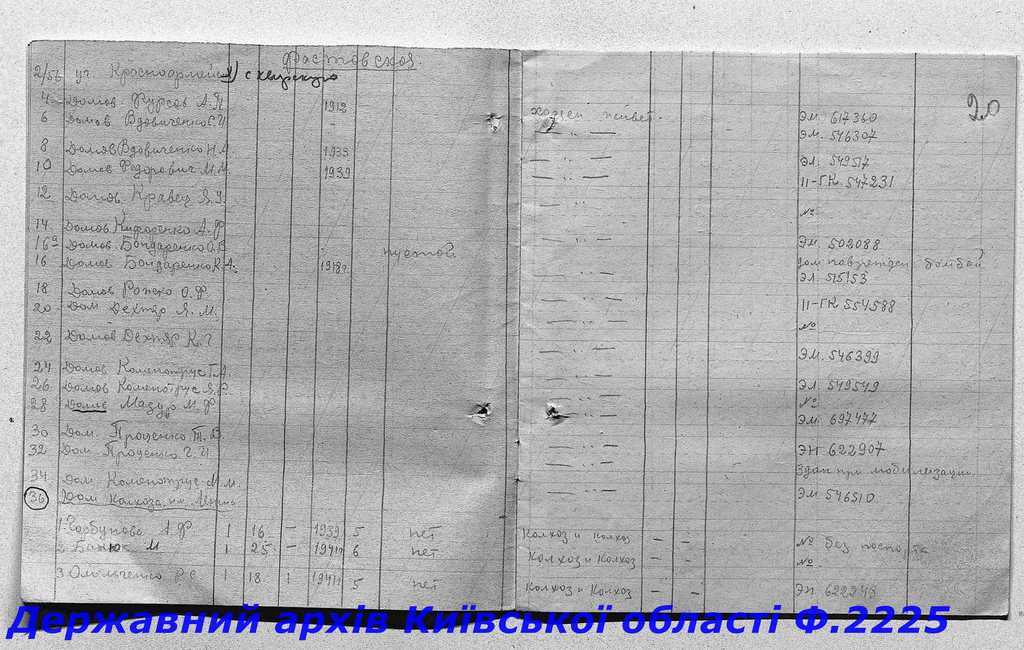 Фастовская.
2/56 уг. Красноармейск
20
4 Домов. Фурсов А.Я. 1912 ЭМ. 617360
6 Домов Вдовиченко Г.И. — " — ЭМ. 546307
8 Домов Вдовиченко Н.А 1935 — " — ЭЛ. 549517
10 Домов Федорович М.М. 1939 — " — II-ГК 547231
12 Домов. Кравец Я.У. — " — №
14. Домов А.Ф — " — ЭМ. 502088
16а Домов. Бондаренко пустой дом поврежден бомбой
16 Домов Бондаренко К.А. 1918г. — " — ЭЛ. 515153
18 Домов Рожко О.Ф. — " — II-ГК 554588
20 Дом Дехтяр Я.М. — " — №
22 Домов Дехтяр К.Г — " — ЭМ. 546399
24 Домов Коленотрус Г.А — " — ЭЛ. 549549
26. Домов Коленотрус — " — №
28 Домов Мазур М.Ф. — " — ЭМ. 697477
30 Дом. Проценко Т.В. — " — ЭН 622907
32 Дом Проценко Г.И — " — Здан при мобилизации
34 Дом Коленотрус М.М. — " — ЭМ 546510
36 Дом Колхоза им.
1. Горбунова А.Ф 1 16 — 1939 5 нет Колхоз и Колхоз — — № без паспорта
2 М 1 25 — 1941 6 нет Колхоз и Колхоз — №
3 Р.С. 1 18. 1 1941 5 нет Колхоз и Колхоз — — ЭН 622949
Державний архів Київської області Ф.2225